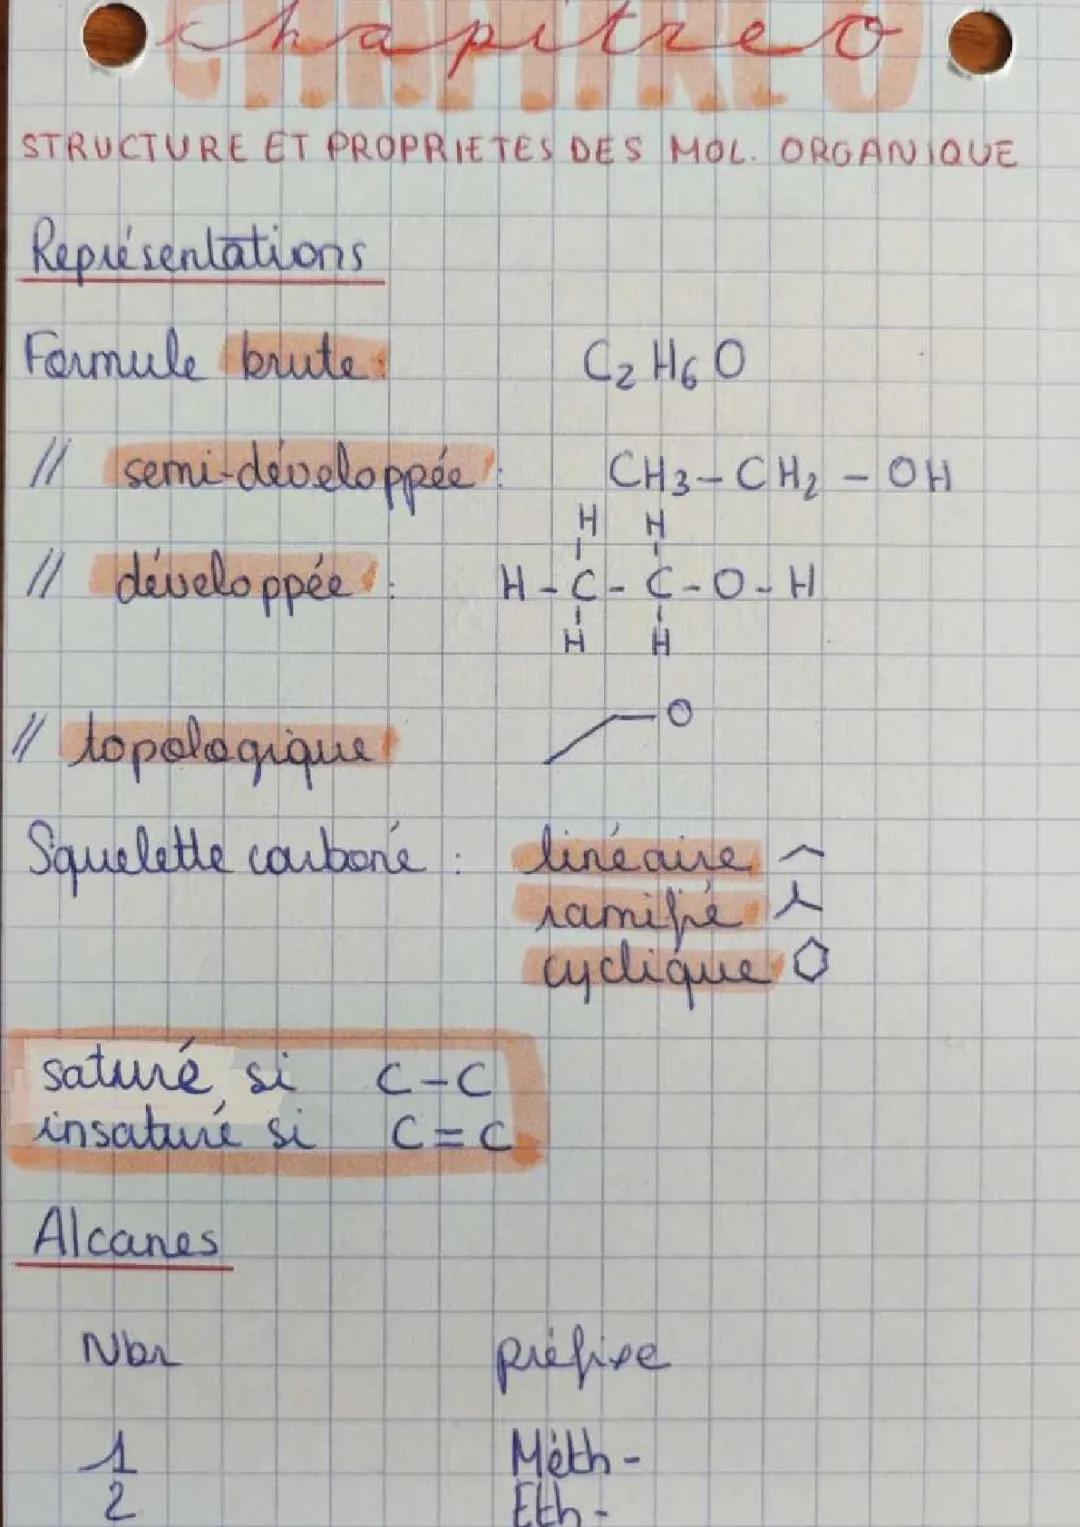 chapitre 0
CHAPITRE 0
STRUCTURE ET PROPRIETES DES MOL. ORGANIQUE
Représentations
Formule brute : C₂H₆O
// semi-développée : CH₃ - CH₂ - OH
H H
// développée : H - C - C - O - H
H H
// topologique O
Squelette carboné : linéaire
ramifié
cyclique
saturé si C - C
insaturé si C = C
Alcanes
Nbr préfixe
1 Méth -
2 Eth -